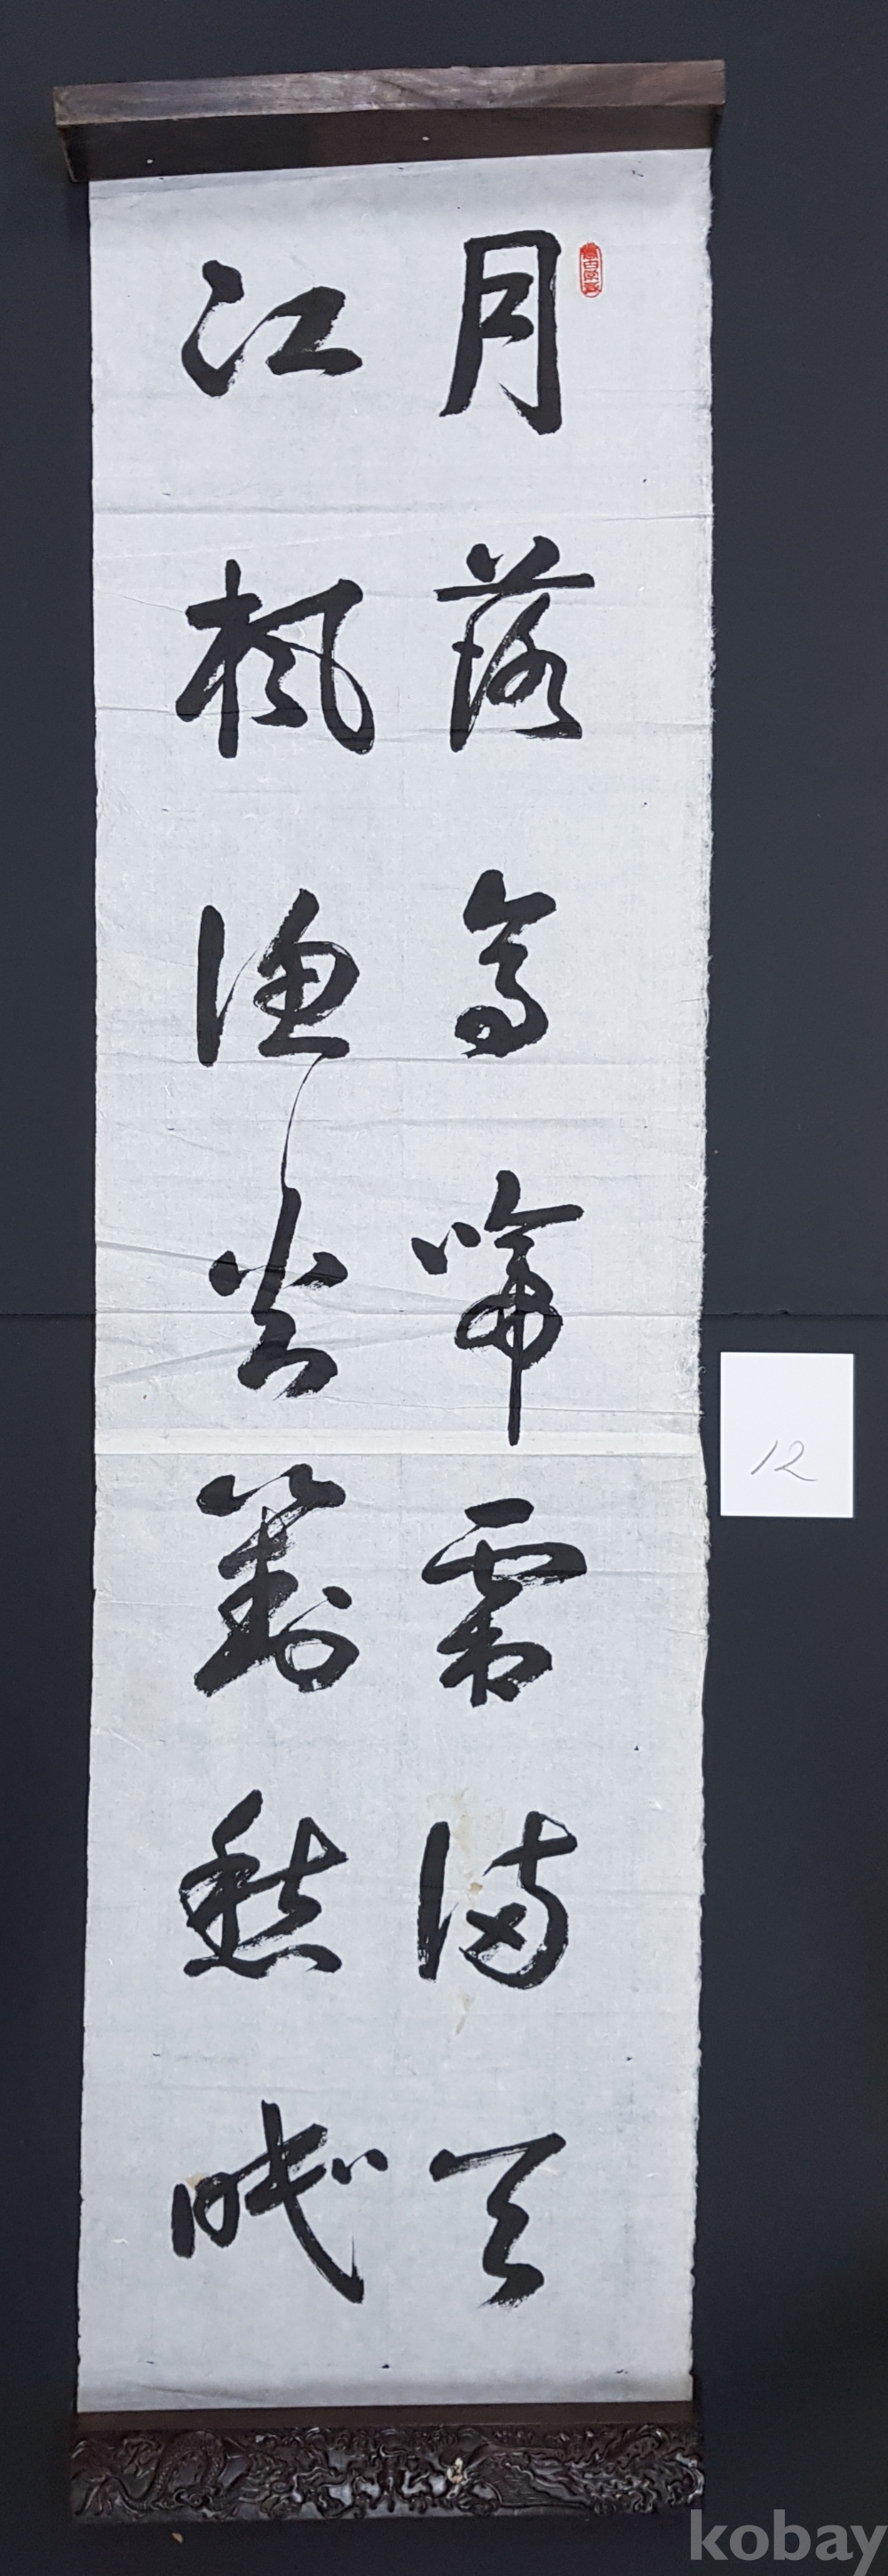 月落烏啼霜满天
江枫渔火對愁眠
12
kobay